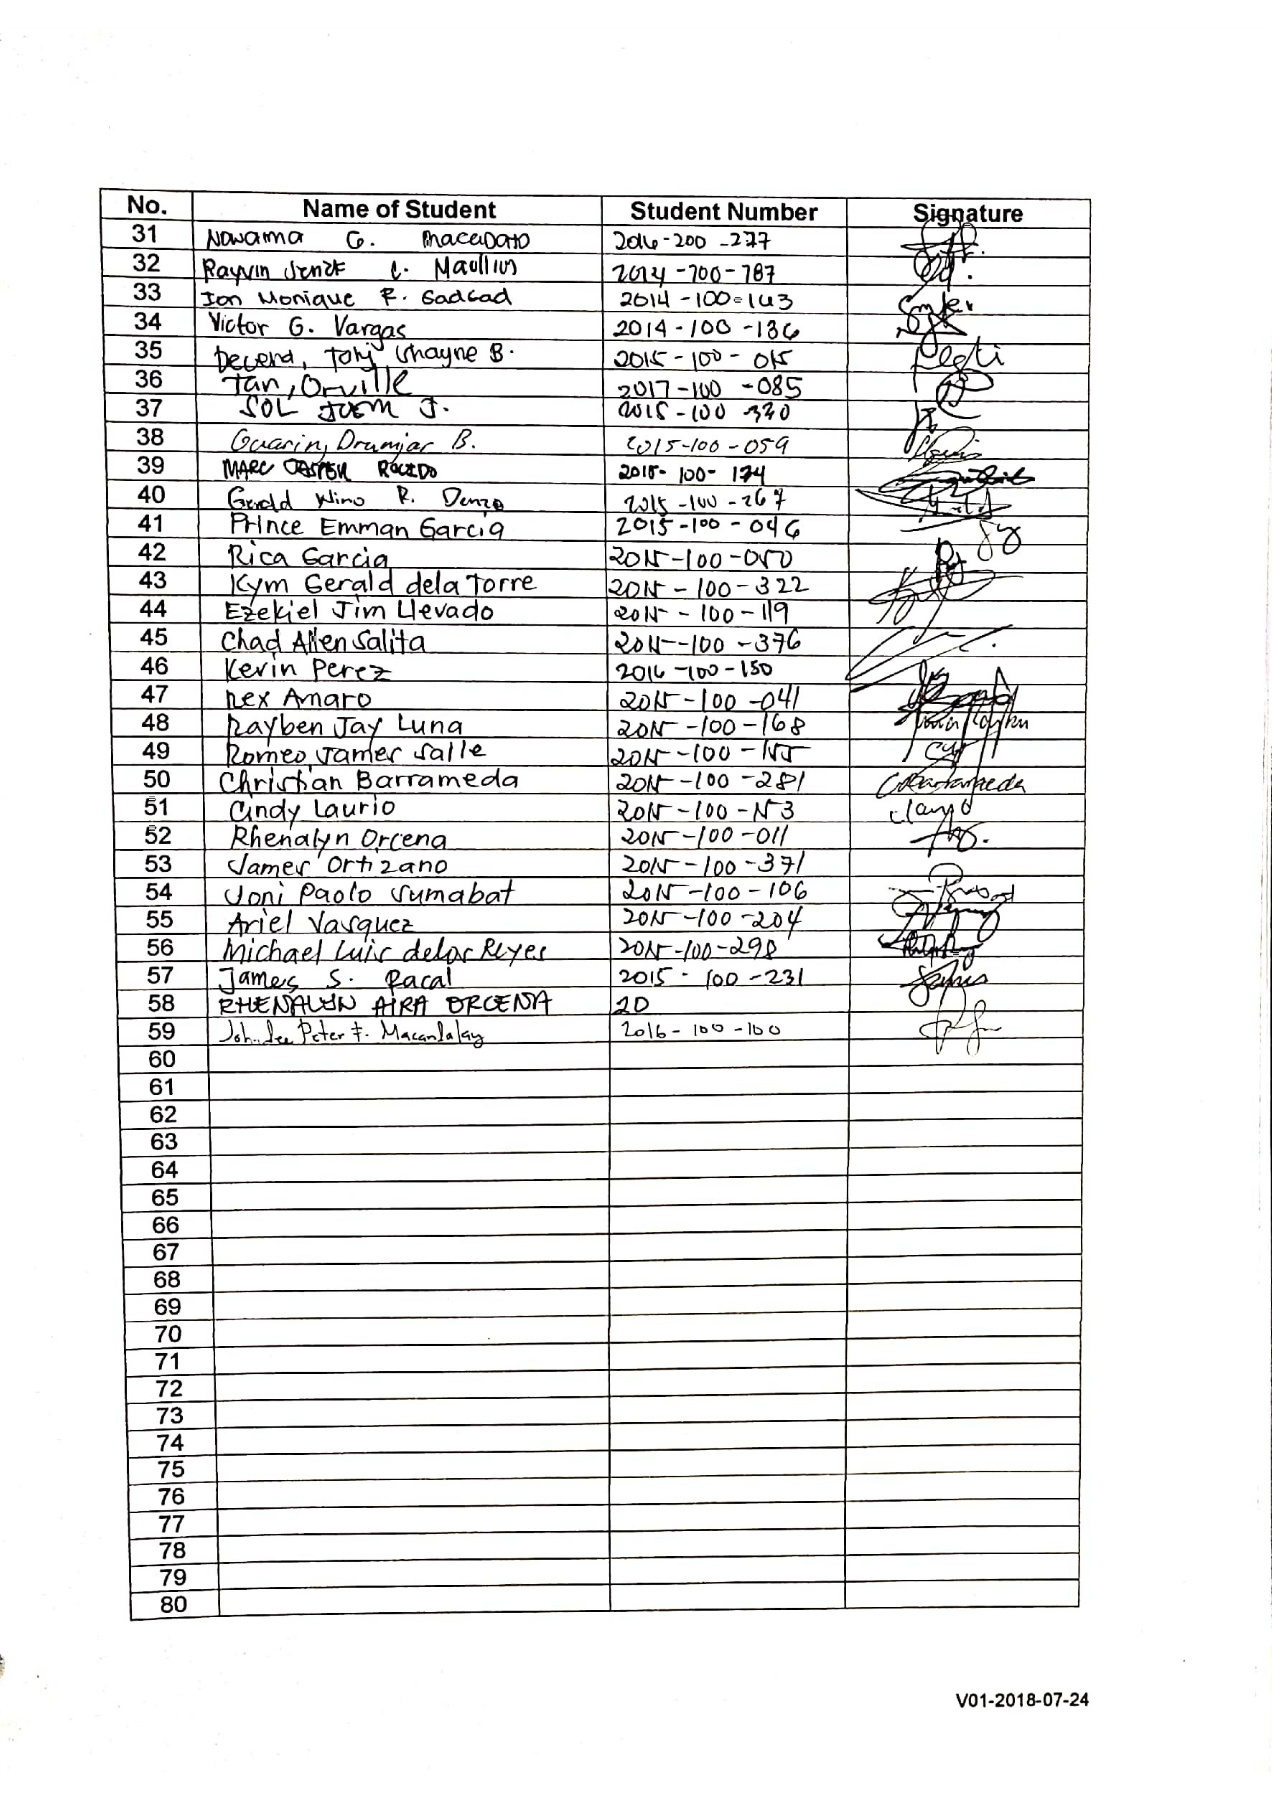 No. Name of Student Student Number Signature
31 Nawama G. Macadato 2016-200-277
32 Rayvin C. 2014-700-787
33 Jan Monique F. Gadgad 2014-100-143
34 Victor G. Vargas 2014-100-136
35 Shayne B. 2015-100-015
36 Tan, Orville 2017-100-085
37 SOL JOEM J. 2015-100-320
38 Guarin, Drumjar B. 2015-100-059
39 MARC CASPER ROCEDO 2015-100-174
40 Gerald Nino R. Denzo 2015-100-267
41 Prince Emman Garcia 2015-100-046
42 Rica Garcia 2015-100-050
43 Kym Gerald dela Torre 2015-100-322
44 Ezekiel Jim Llevado 2015-100-119
45 Chad Allen Salita 2015-100-376
46 Kevin Perez 2016-100-150
47 Rex Amaro 2015-100-041
48 Rayben Jay Luna 2015-100-168
49 Romeo James Salle 2015-100-155
50 Christian Barrameda 2015-100-281 CBarrameda
51 Cindy Laurio 2015-100-153
52 Rhenalyn Orcena 2015-100-011
53 James Ortizano 2015-100-371
54 Joni Paolo Sumabat 2015-100-106
55 Ariel Vasquez 2015-100-204
56 Michael Luis delos Reyes 2015-100-298
57 James S. Racal 2015-100-231
58 RHENALYN AIRA ORCENA 20
59 John Lee Peter F. Macandalay 2016-100-100
60
61
62
63
64
65
66
67
68
69
70
71
72
73
74
75
76
77
78
79
80
V01-2018-07-24